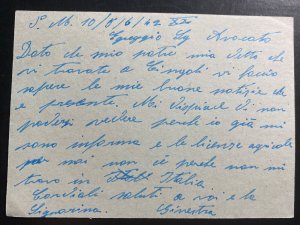 P. M. 10/8/6/42 XX
Egreggio Sg Avvocato
Dato che mio padre mia detto che
vi trovate a Cingoli vi faccio
sapere le mie buone notizie che
e presente. Mi dispiace di non
potervi vedere perche io già mi
sono informa e le licenze agricole
per mai non cè perche non mi
trovo in Italia
Cordiali saluti a voi e la
Signorina. Ginestra